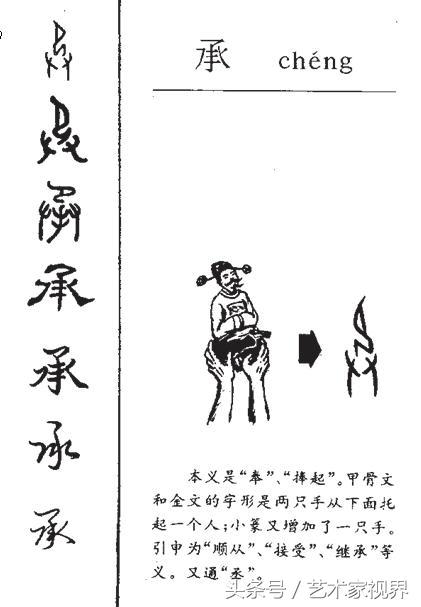 承 chéng
本义是“奉”、“捧起”。甲骨文
和金文的字形是两只手从下面托
起一个人;小篆又增加了一只手。
引申为“顺从”、“接受”、“继承”等
义。又通“丞”。
承
承
承
承
头条号/艺术家视界